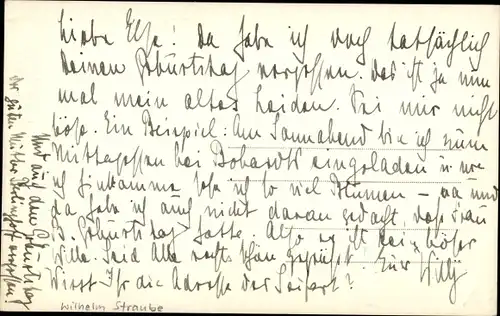 Liebe Else! Da habe ich doch tatsächlich
Deinen Geburtstag vergessen. Das ist ja nun
mal mein altes Leiden. Sei mir nicht
böse. Ein Beispiel: Am Sonnabend bin ich zum
Mittagessen bei Bobardts eingeladen u. wie
ich hinkomme sehe ich so viel Blumen – na und
da habe ich auch nicht daran gedacht, dass Frau
B. Geburtstag hatte. Also es ist kein böser
Wille. Seid Alle recht schön gegrüßt. Euer Willy
Wisst Ihr die Adresse des Seifert?
Und aus dem Geburtstag
Der guten Mutter
Wilhelm Straube